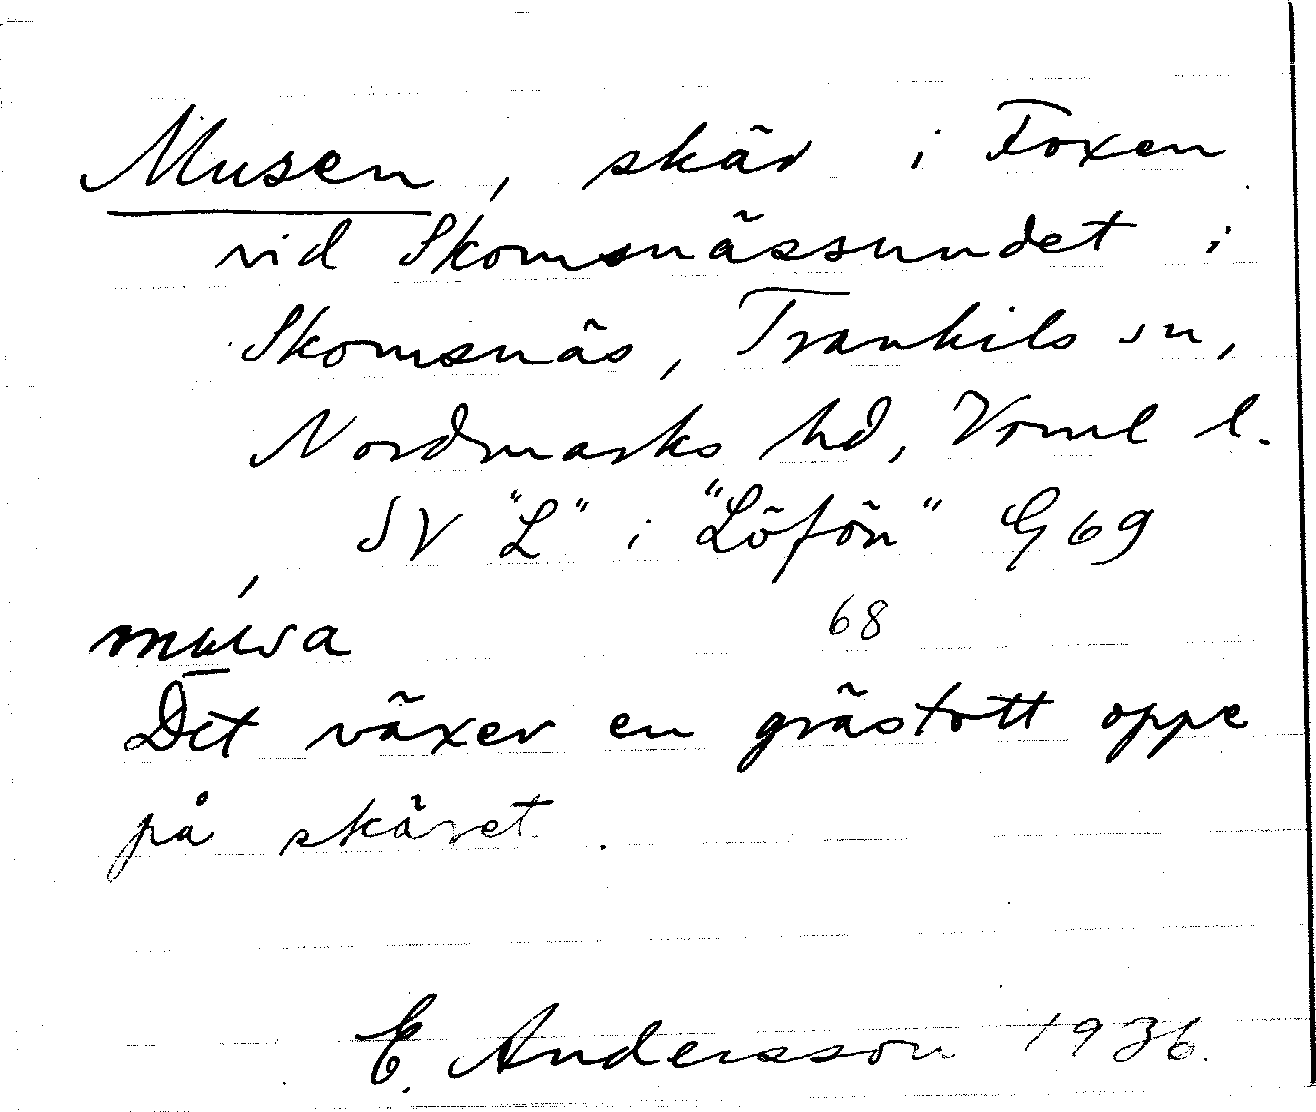 Musen, skär i Foxen
vid Skomsnässundet i
Skomsnäs, Trankils sn,
Nordmarks hd, Vrml l.
SV "L" i "Löfön" G 69
68
Det växer en grästott oppe
på skäret.
E. Andersson 1936.